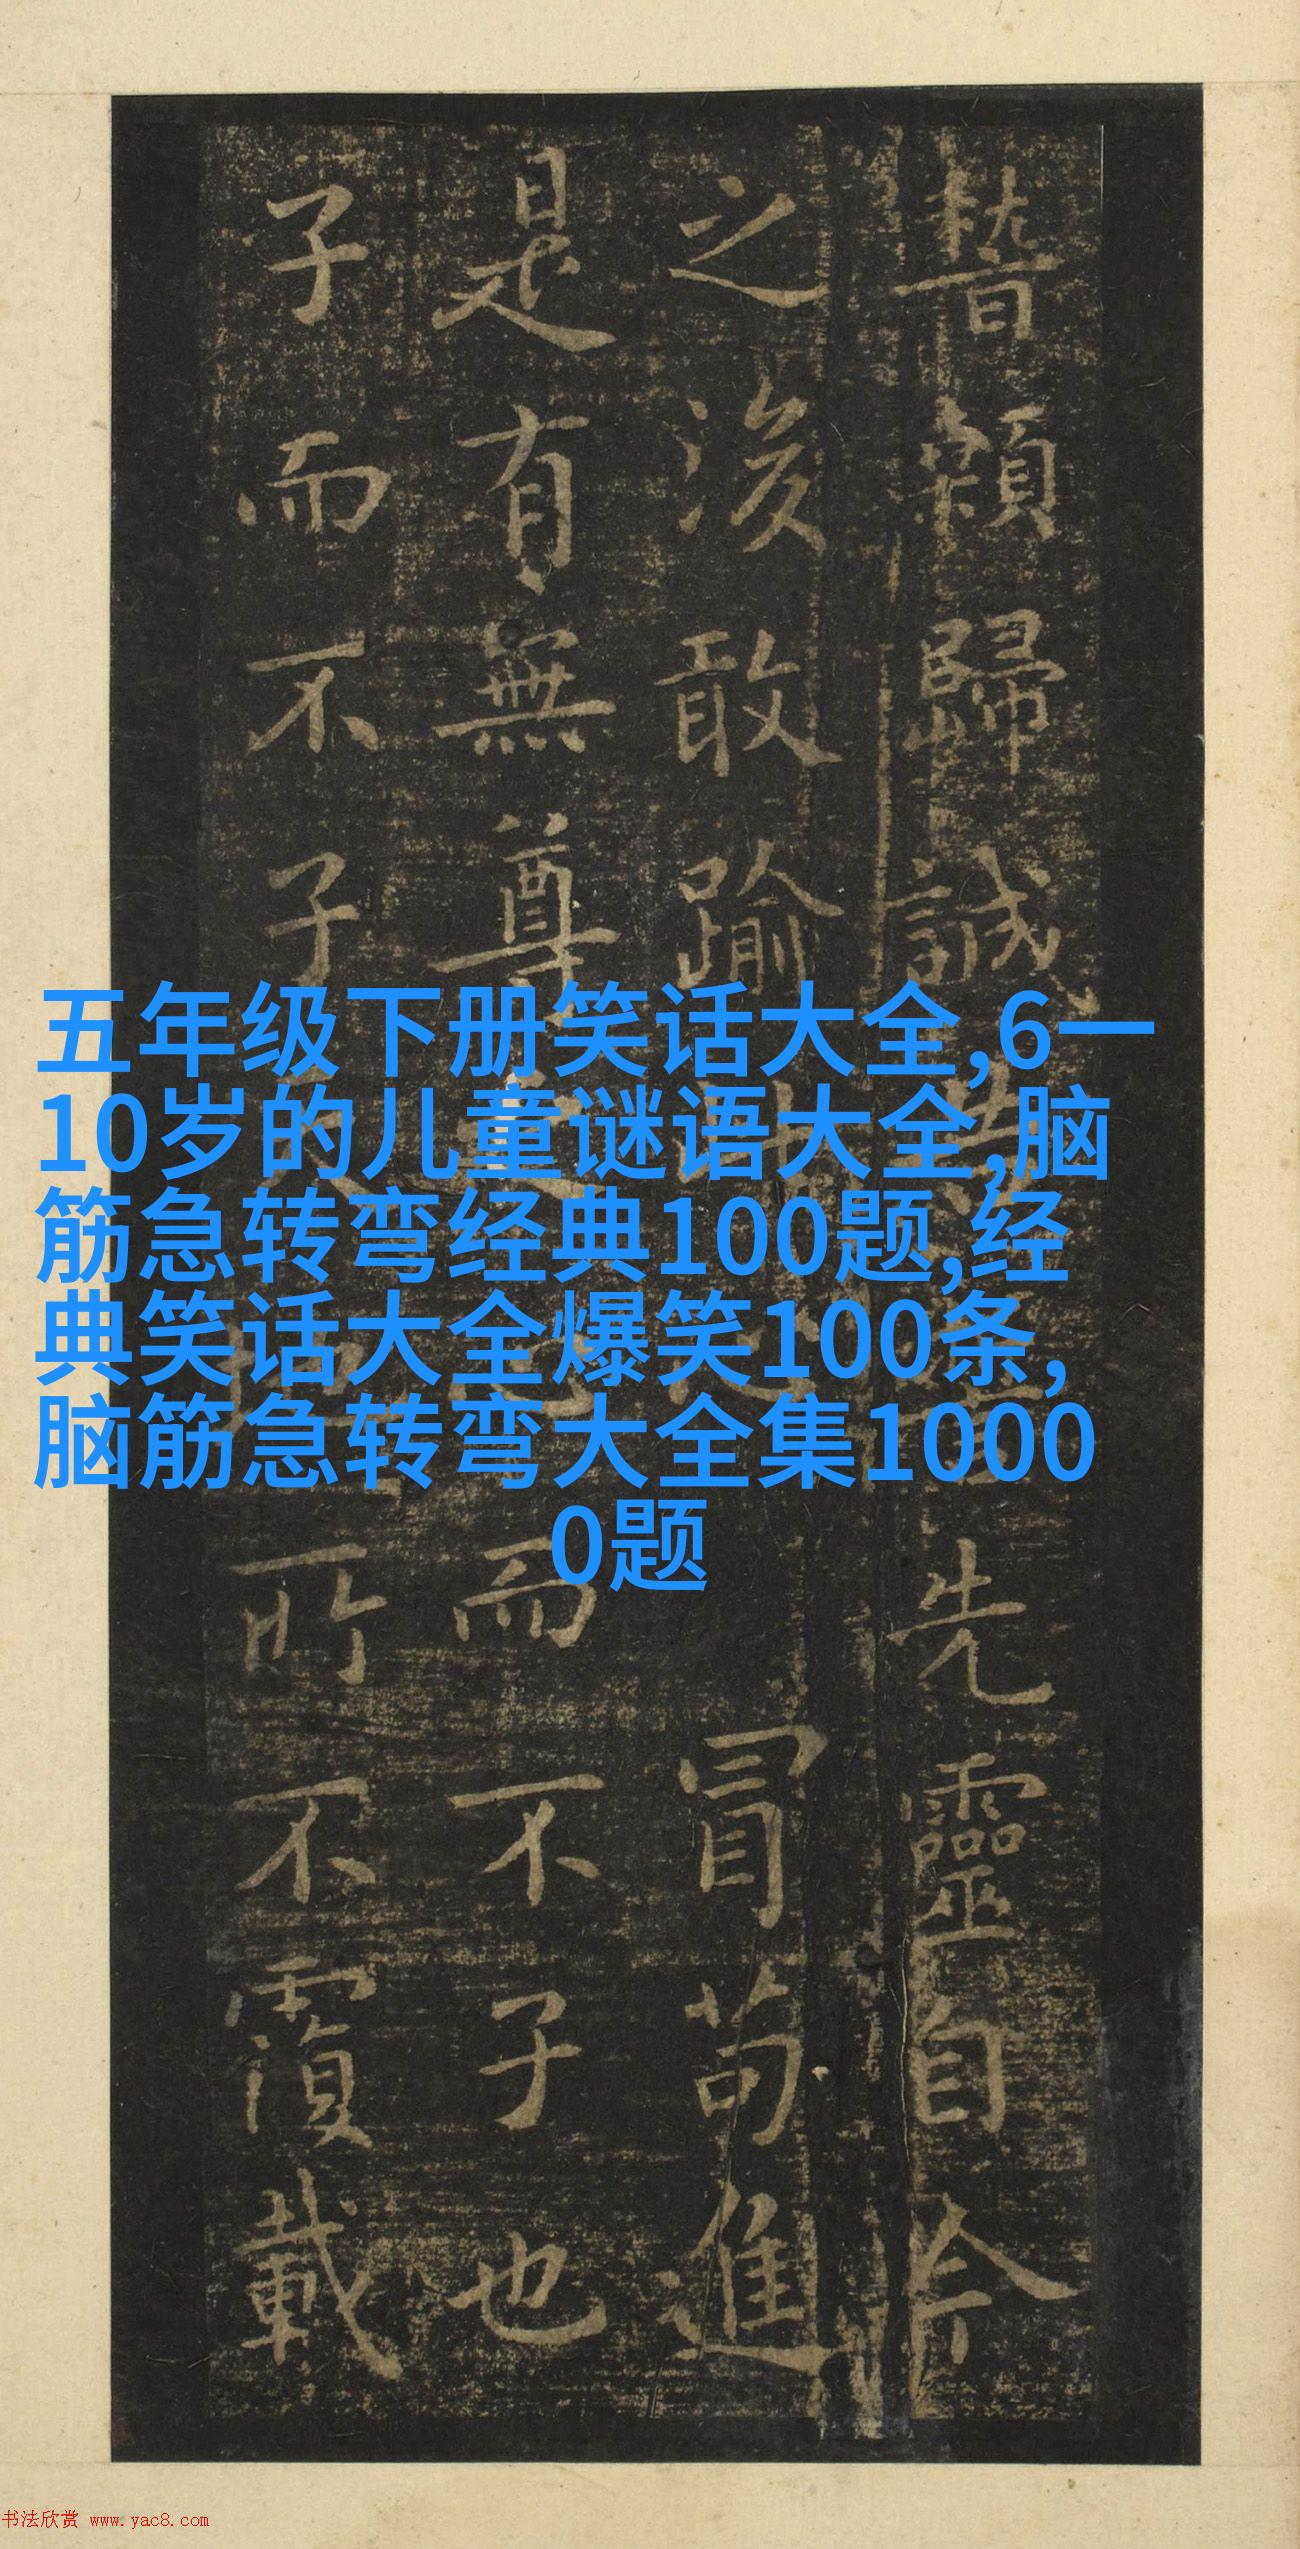 稽顙歸誠 先靈自今
之後敢踰 冒苟進
是有無尊 而不子也
子而不子 所不覆載
五年级下册笑话大全,6一
10岁的儿童谜语大全,脑
筋急转弯经典100题,经
典笑话大全爆笑100条,
脑筋急转弯大全集1000
0题
书法欣赏 www.yac8.com